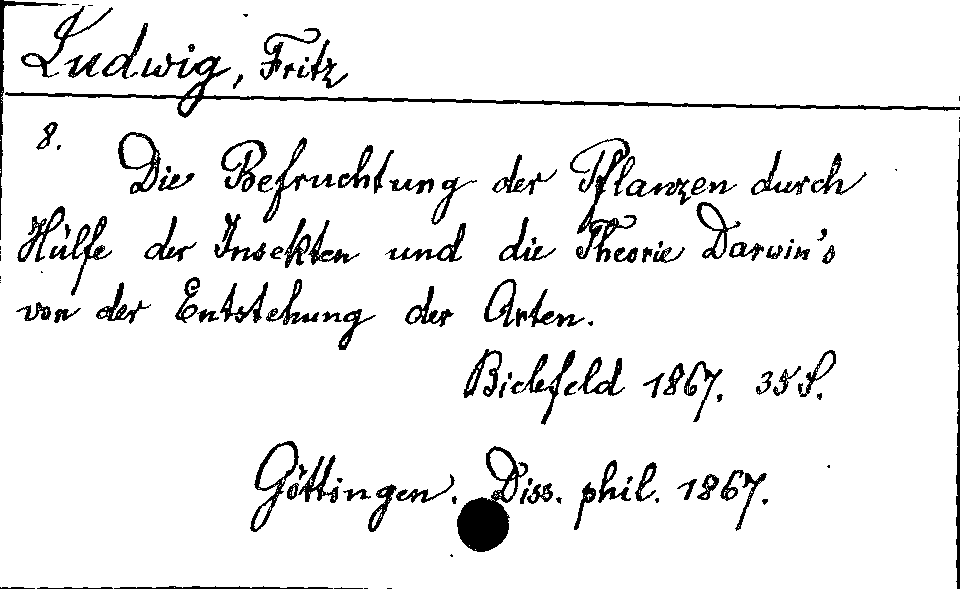 Ludwig, Fritz
8.
Die Befruchtung der Pflanzen durch
Hülfe der Insekten und die Theorie Darwin's
von der Entstehung der Arten.
Bielefeld 1867. 35 S.
Göttingen. Diss. phil. 1867.